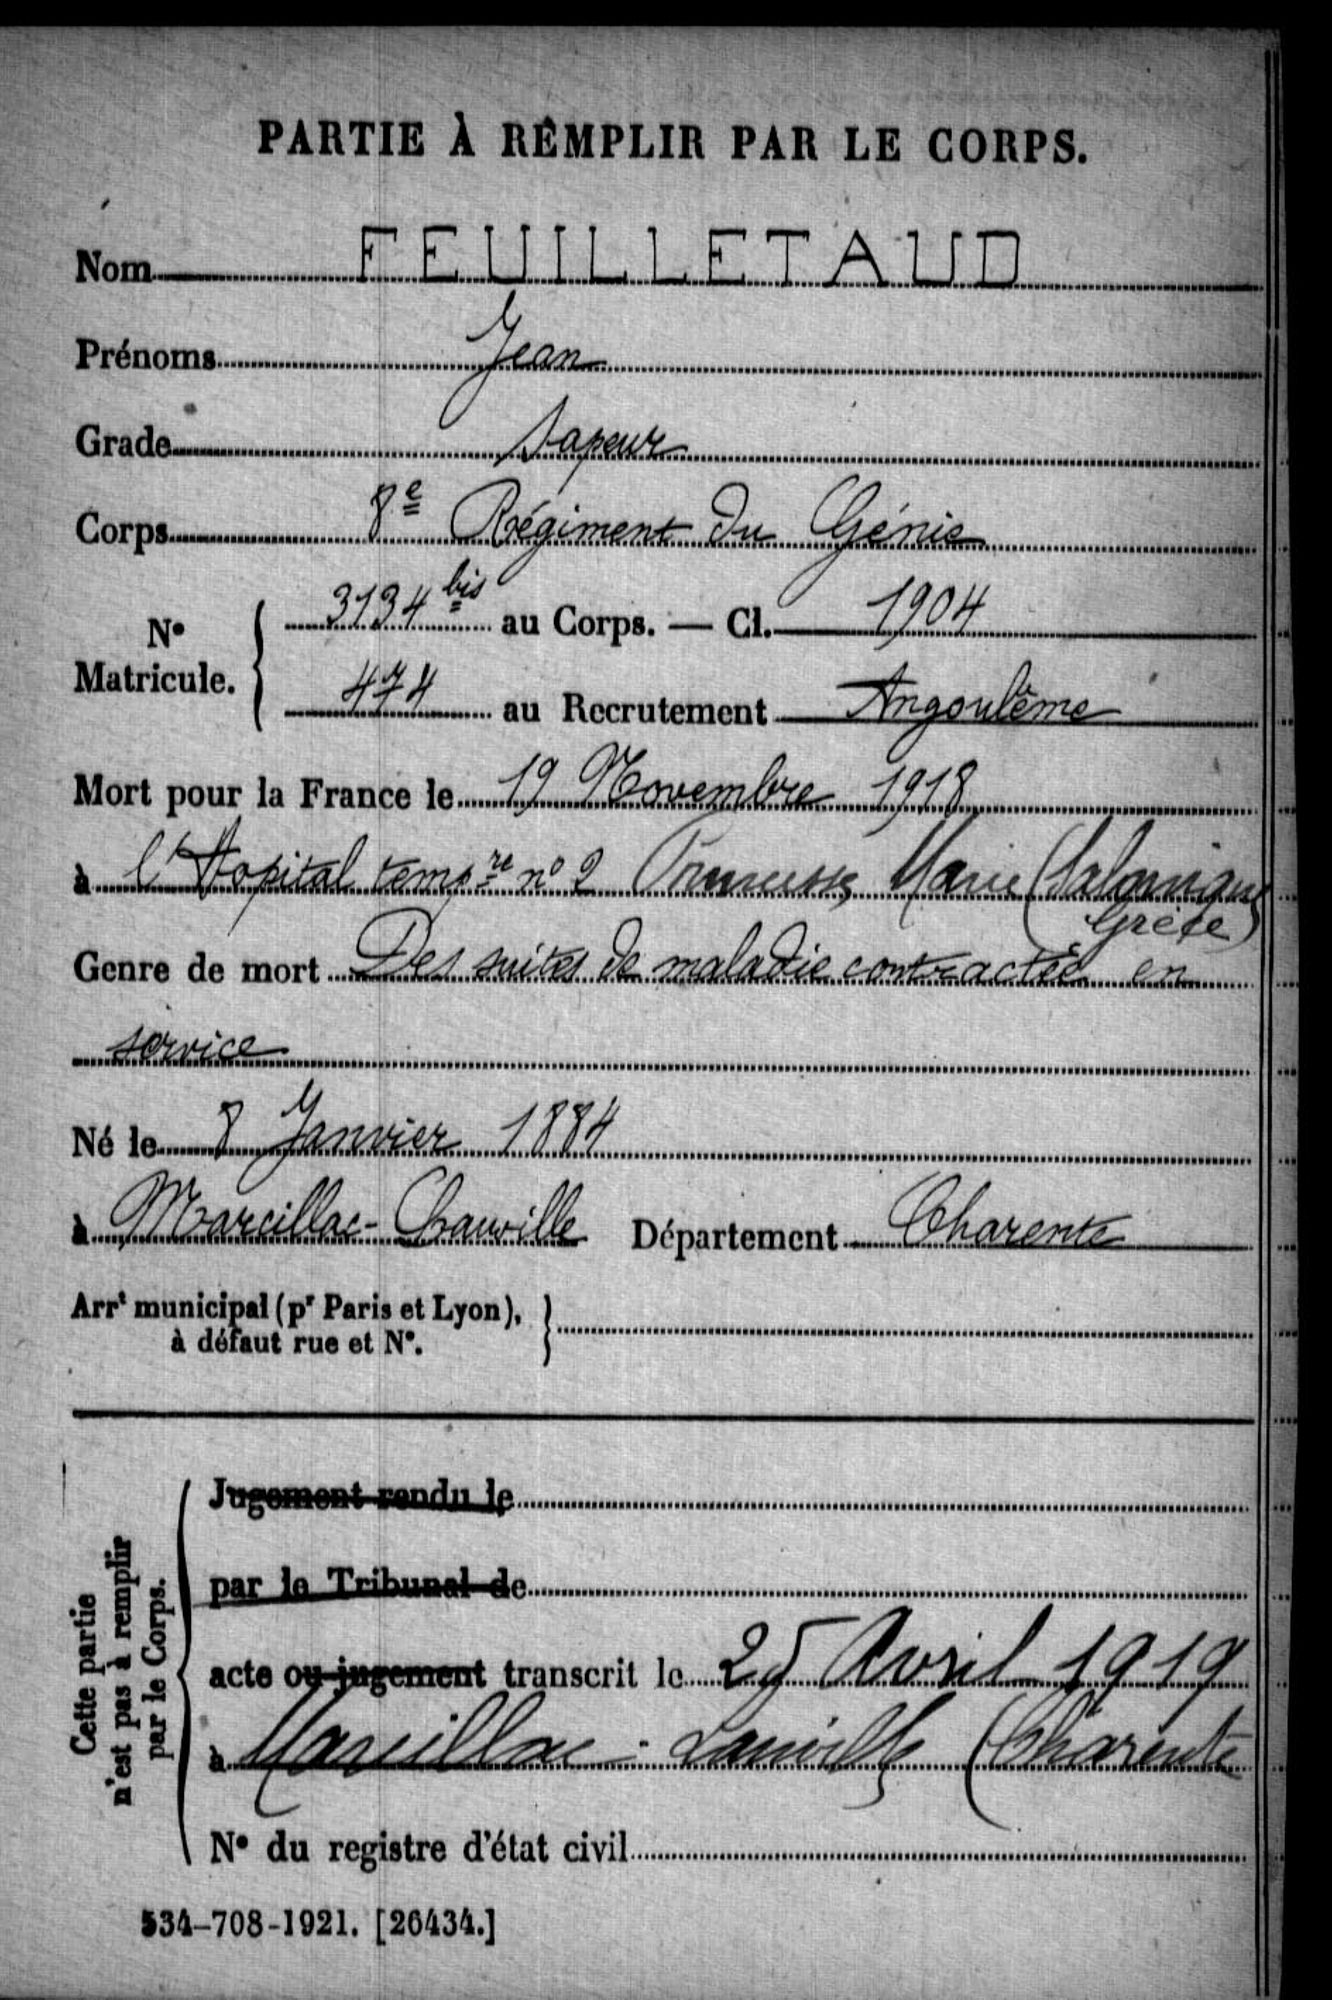 PARTIE À REMPLIR PAR LE CORPS.
Nom FEUILLETAUD
Prénoms Jean
Grade Sapeur
Corps 8e Régiment du Génie
N° Matricule. { 3134 bis au Corps. — Cl. 1904
474 au Recrutement Angoulême
Mort pour la France le 19 Novembre 1918
à l'Hopital tempre n° 2 Princesse Marie (Salonique
Grèce)
Genre de mort Des suites de maladie contractée en
service
Né le 8 Janvier 1884
à Marcillac-Lanville Département Charente
Arrt municipal (pr Paris et Lyon),
à défaut rue et N°. }
Cette partie
n'est pas à remplir
par le Corps.
Jugement rendu le
par le Tribunal de
acte ou jugement transcrit le 25 Avril 1919
à Marcillac-Lanville (Charente
N° du registre d'état civil
534-708-1921. [26434.]